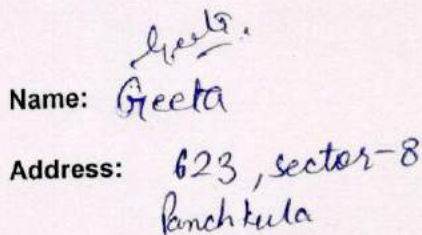 Geeta.
Name: Geeta
Address: 623, sector-8
Panchkula